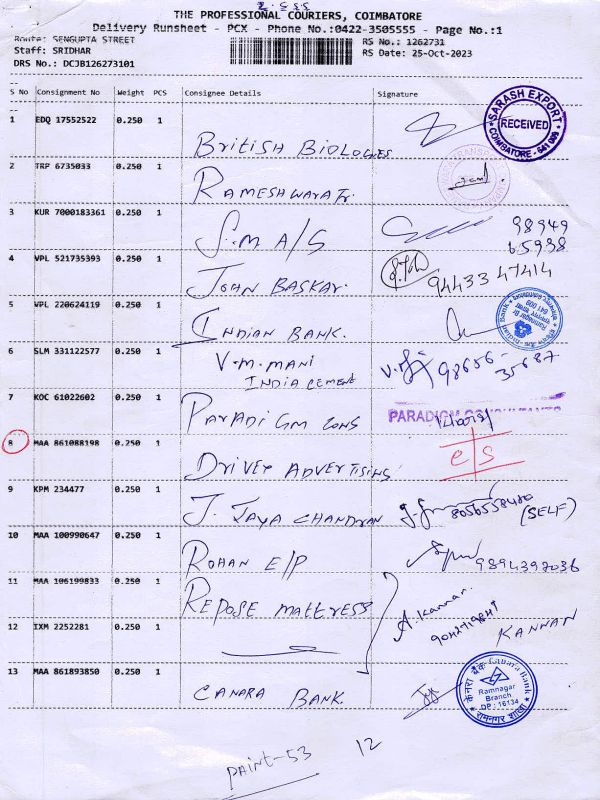 THE PROFESSIONAL COURIERS, COIMBATORE
Delivery Runsheet - PCX - Phone No.:0422-3505555 - Page No.:1
Route: SENGUPTA STREET RS No.: 1262731
Staff: SRIDHAR RS Date: 25-Oct-2023
DRS No.: DCJB126273101
S No Consignment No Weight PCS Consignee Details Signature
1 EDQ 17552522 0.250 1
SARASH EXPORT
RECEIVED
COIMBATORE - 641 009
BRITISH BIOLOGIES
2 TRP 6735033 0.250 1
RAMESHWARA Tr.
3 KUR 7000183361 0.250 1
S.M A/G 98949
65938
4 VPL 521735393 0.250 1
JOHN BASKAR. 94433 47414
5 VPL 220624119 0.250 1
INDIAN BANK.
6 SLM 331122577 0.250 1
V.M.MANI 98656-
INDIA CEMENT 35687
7 KOC 61022602 0.250 1
PARADIGM CONS PARADIGM CONSULTANTS
8 MAA 861088198 0.250 1
DRIVER ADVERTISING
9 KPM 234477 0.250 1
J. JAYA CHANDRAN 8056558480 (SELF)
10 MAA 100990647 0.250 1
ROHAN E/P 9894397036
11 MAA 106199833 0.250 1
REPOSE MATTRESS A. Kannan.
12 IXM 2252281 0.250 1
KANNAN
13 MAA 861893850 0.250 1
CANARA BANK.
केनरा बैंक Canara Bank
Ramnagar
Branch
DP : 16134
रामनगर शाखा
PAINT-53 12